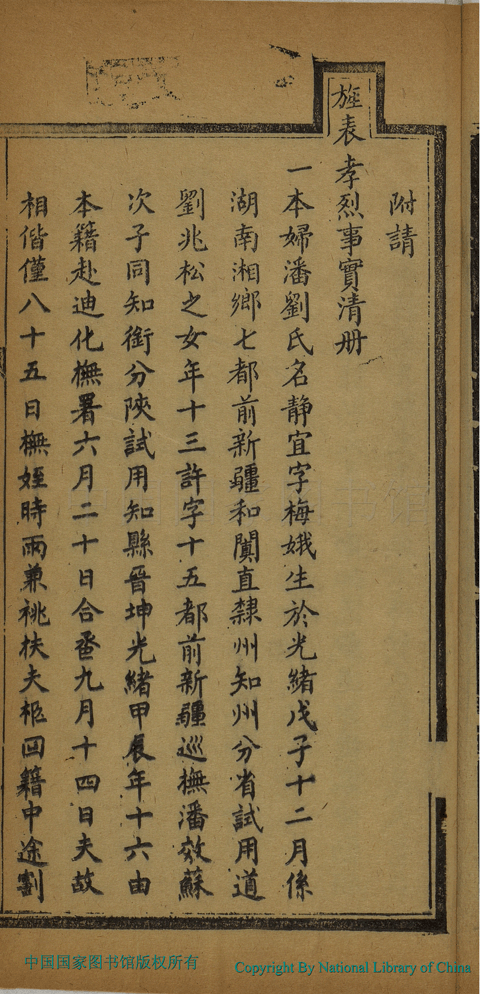 附請
旌表孝烈事實清册
一本婦潘劉氏名靜宜字梅娥生於光緒戊子十二月係
湖南湘鄉七都前新疆和闐直隸州知州分省試用道
劉兆松之女年十三許字十五都前新疆巡撫潘效蘇
次子同知銜分陝試用知縣晉坤光緒甲辰年十六由
本籍赴迪化撫署六月二十日合卺九月十四日夫故
相偕僅八十五日撫姪時雨兼祧扶夫柩回籍中途割
中国国家图书馆版权所有
Copyright By National Library of China